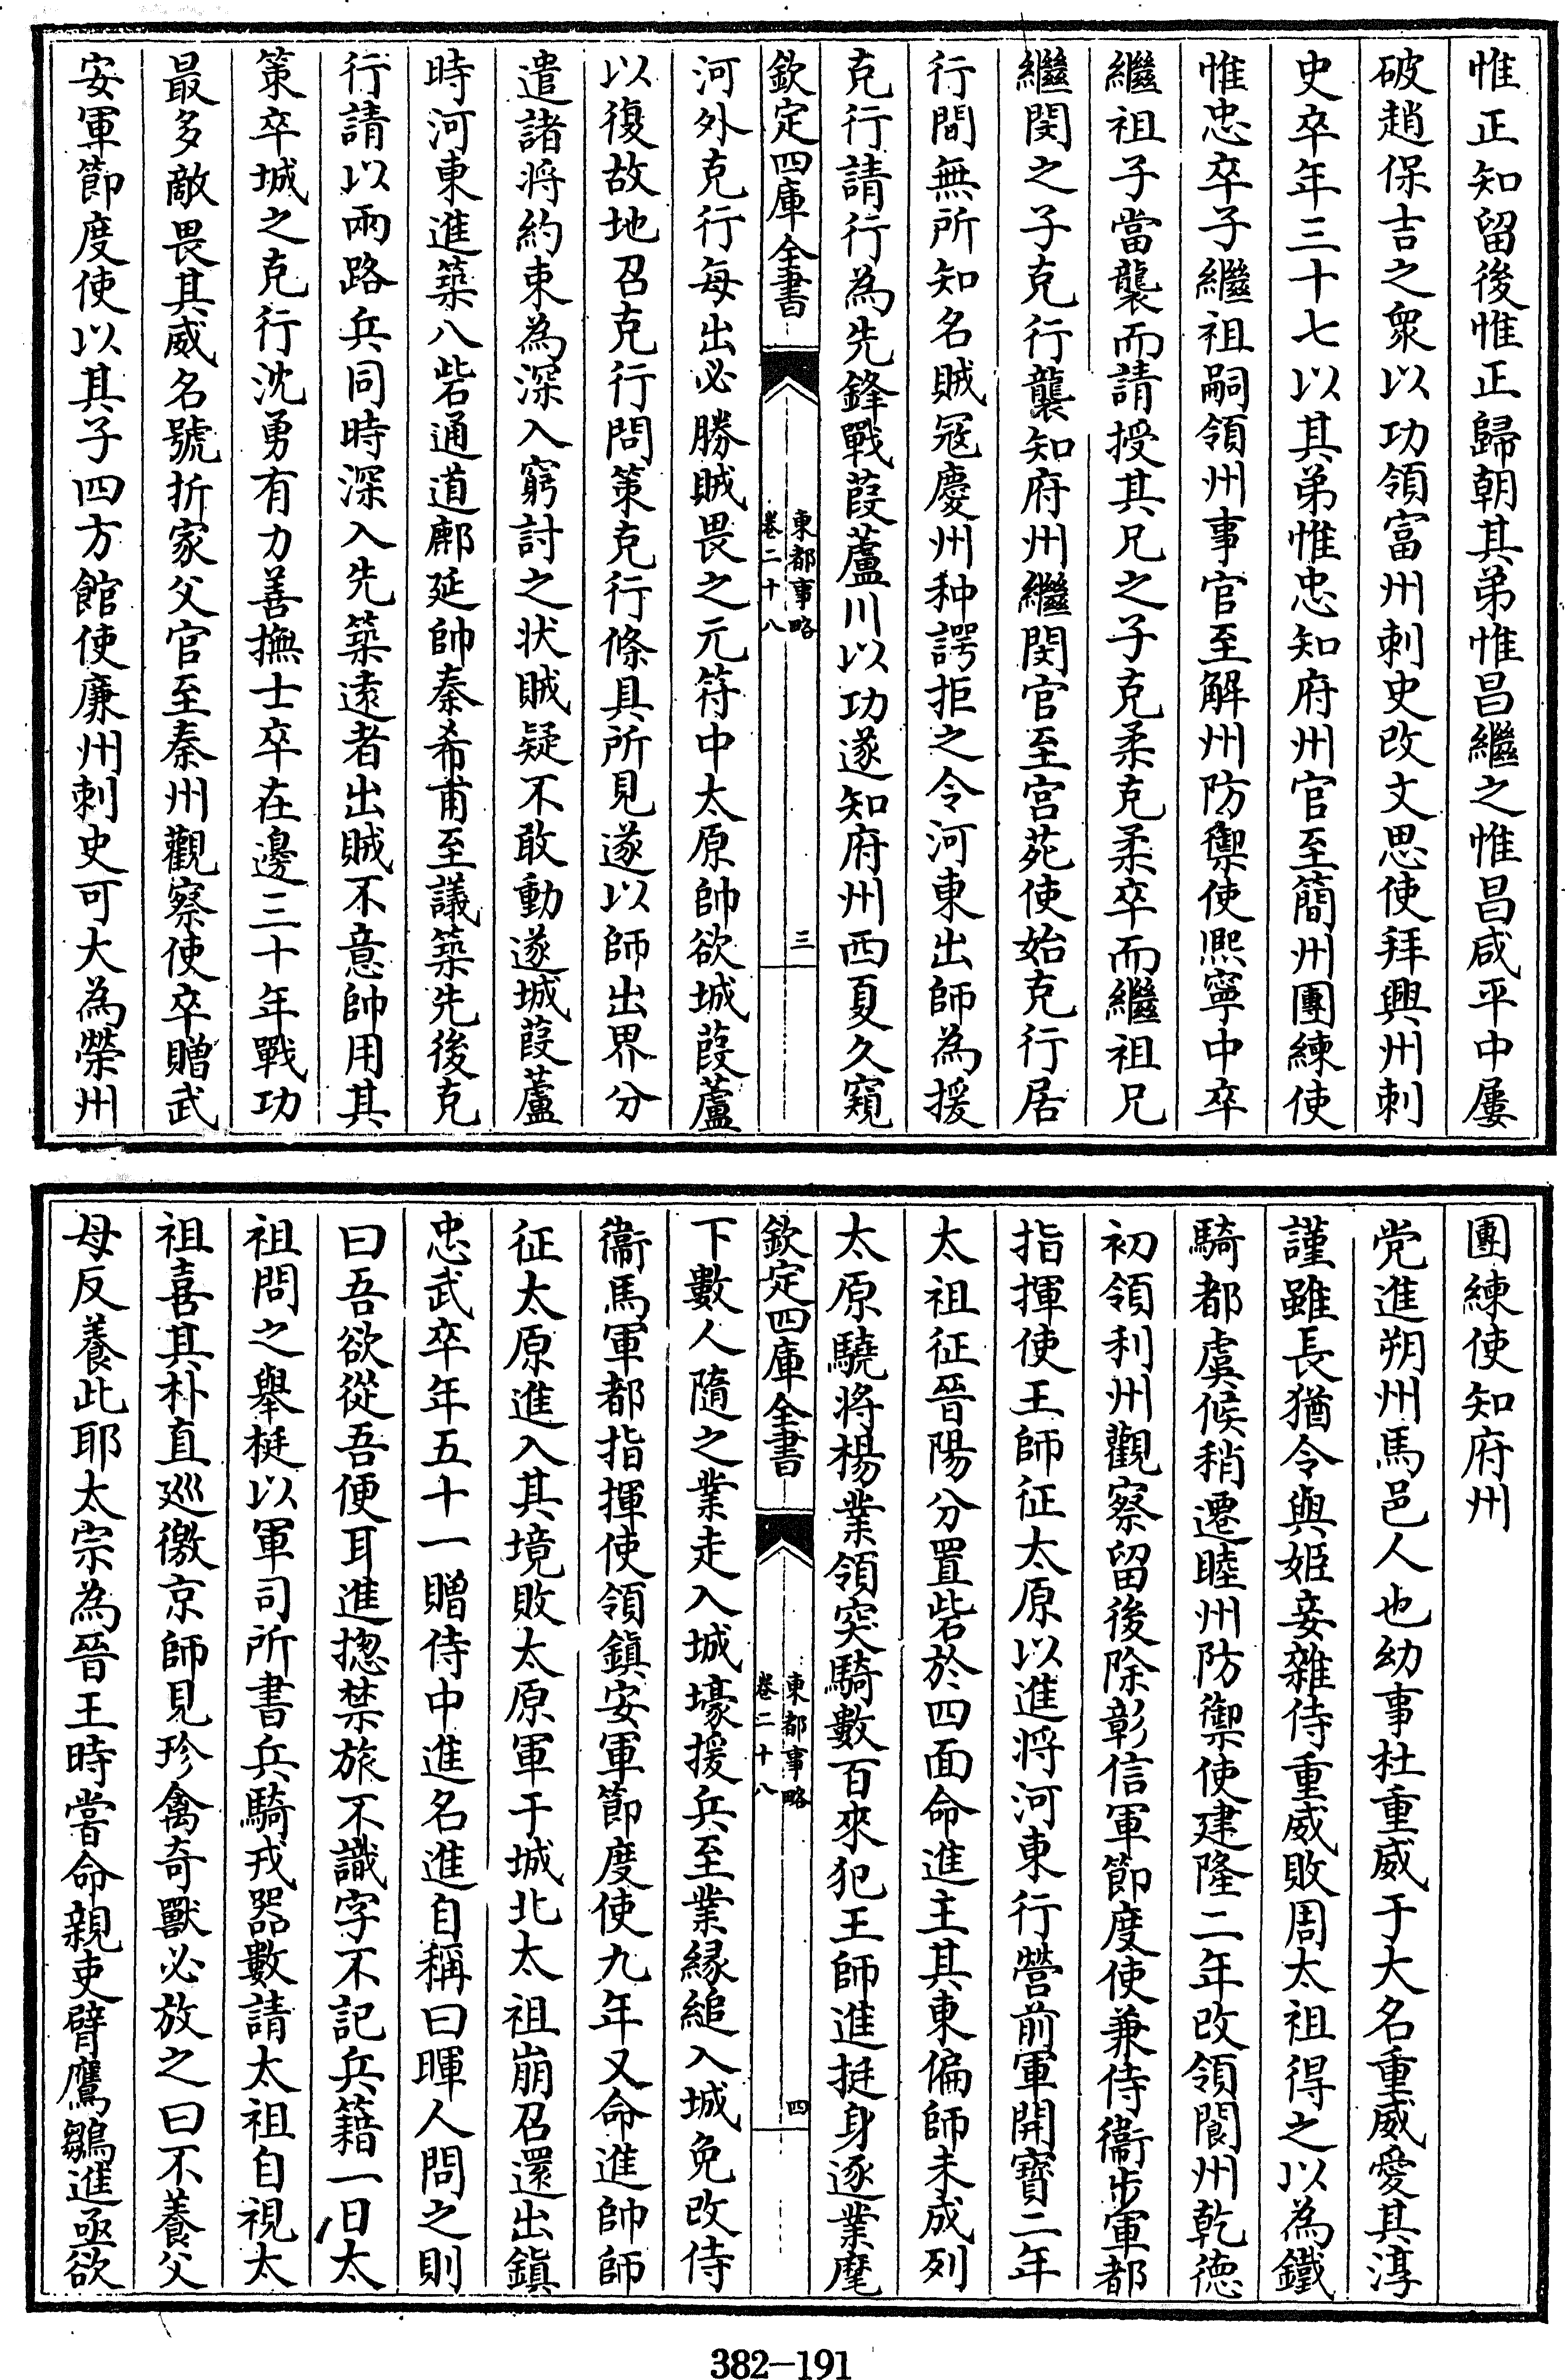 惟正知留後惟正歸朝其弟惟昌繼之惟昌咸平中屢
破趙保吉之衆以功領富州刺史改文思使拜興州刺
史卒年三十七以其弟惟忠知府州官至簡州團練使
惟忠卒子繼祖嗣領州事官至解州防禦使熙寧中卒
繼祖子當襲而請授其兄之子克柔克柔卒而繼祖兄
繼閔之子克行襲知府州繼閔官至宫苑使始克行居
行間無所知名賊冦慶州种諤拒之令河東出師為援
克行請行為先鋒戰葭蘆川以功遂知府州西夏久窺
欽定四庫全書
東都事略
卷二十八
三
河外克行每出必勝賊畏之元符中太原帥欲城葭蘆
以復故地召克行問策克行條具所見遂以師出界分
遣諸將約束為深入窮討之状賊疑不敢動遂城葭蘆
時河東進築八砦通道鄜延帥秦希甫至議築先後克
行請以兩路兵同時深入先築逺者出賊不意帥用其
策卒城之克行沈勇有力善撫士卒在邊三十年戰功
最多敵畏其威名號折家父官至秦州觀察使卒贈武
安軍節度使以其子四方館使廉州刺史可大為榮州
團練使知府州
党進朔州馬邑人也幼事杜重威于大名重威愛其淳
謹雖長猶令與姬妾雜侍重威敗周太祖得之以為鐵
騎都虞候稍遷睦州防禦使建隆二年改領閬州乾德
初領利州觀察留後除彰信軍節度使兼侍衞步軍都
指揮使王師征太原以進將河東行營前軍開寶二年
太祖征晉陽分置砦於四面命進主其東偏師未成列
太原驍將楊業領突騎數百來犯王師進挺身逐業麾
欽定四庫全書
東都事略
卷二十八
四
下數人隨之業走入城壕援兵至業緣縋入城免改侍
衞馬軍都指揮使領鎮安軍節度使九年又命進帥師
征太原進入其境敗太原軍于城北太祖崩召還出鎮
忠武卒年五十一贈侍中進名進自稱曰暉人問之則
曰吾欲從吾便耳進揔禁旅不識字不記兵籍一日太
祖問之舉梃以軍司所書兵騎戎器數請太祖自視太
祖喜其朴直廵徼京師見珍禽奇獸必放之曰不養父
母反養此耶太宗為晉王時嘗命親吏臂鷹鶵進亟欲
382-191